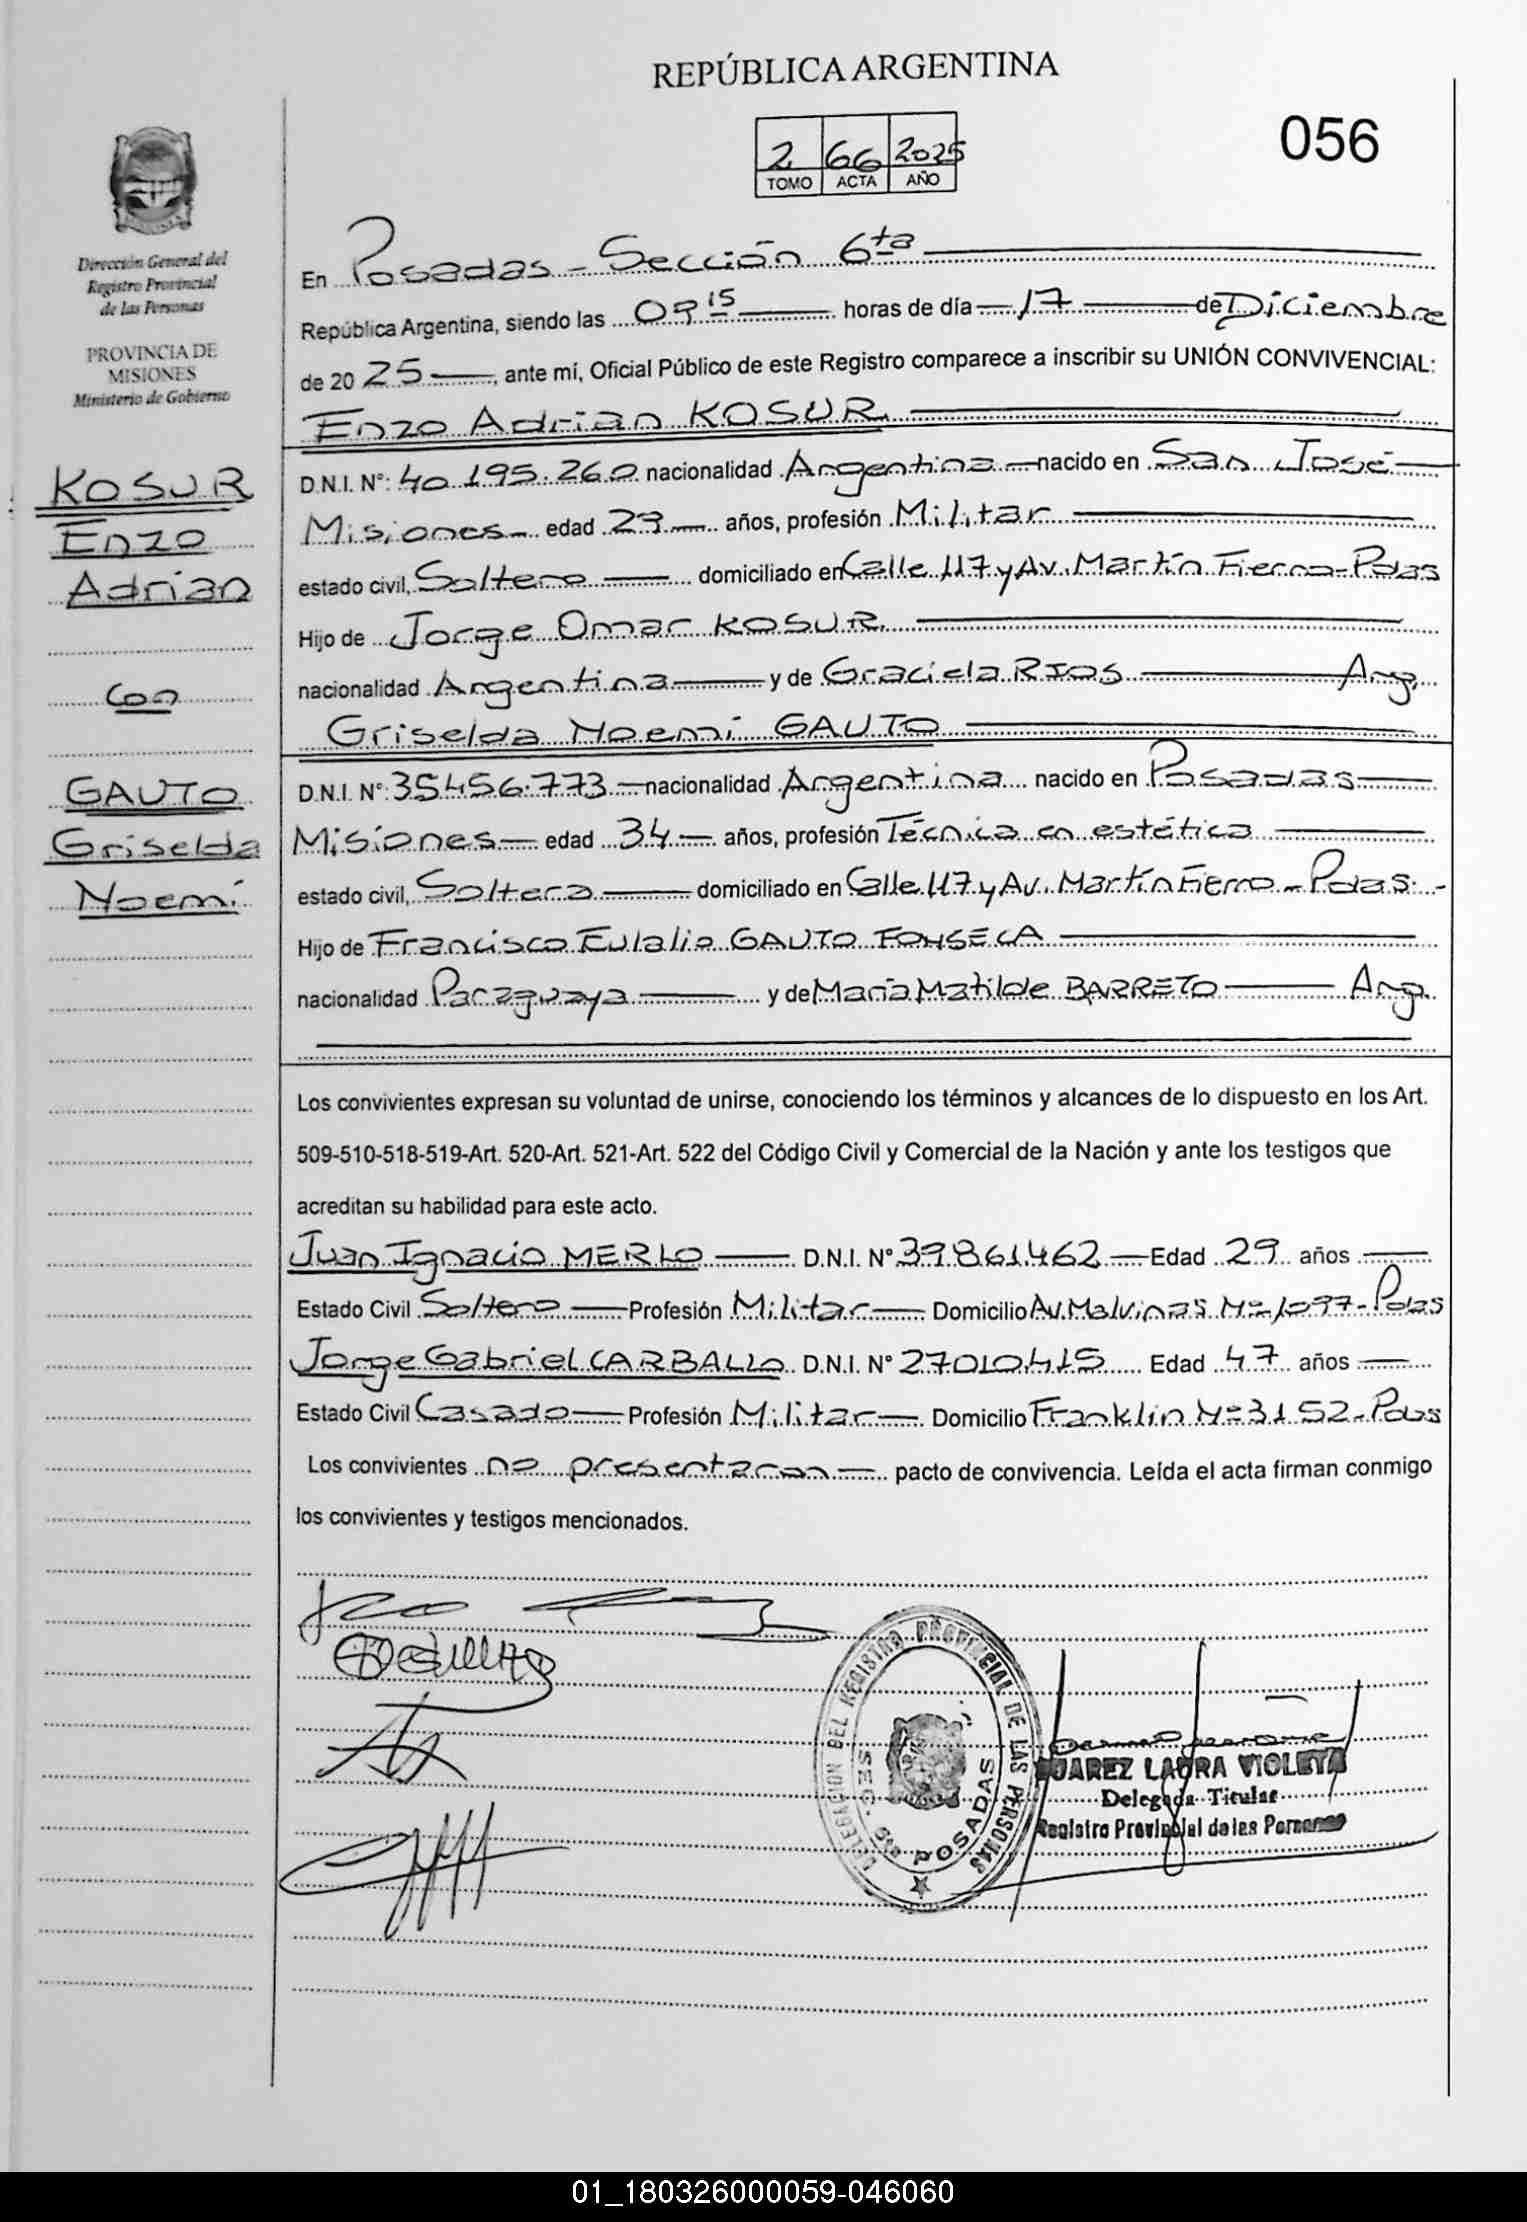 REPÚBLICA ARGENTINA
056
2 66 2025
TOMO ACTA AÑO
Dirección General del
Registro Provincial
de las Personas
PROVINCIA DE
MISIONES
Ministerio de Gobierno
KOSUR
Enzo
Adrian
Con
GAUTO
Griselda
Noemí
En Posadas - Sección 6ta
República Argentina, siendo las 09 15 horas de día 17 de Diciembre
de 20 25, ante mí, Oficial Público de este Registro comparece a inscribir su UNIÓN CONVIVENCIAL:
Enzo Adrian KOSUR
D.N.I. N°: 40.195.260 nacionalidad Argentina nacido en San José
Misiones edad 29 años, profesión Militar
estado civil, Soltero domiciliado en Calle 117 y Av. Martín Fierro - Pdas
Hijo de Jorge Omar KOSUR
nacionalidad Argentina y de Graciela RIOS Arg.
Griselda Noemí GAUTO
D.N.I. N°: 35.456.773 nacionalidad Argentina nacido en Posadas
Misiones edad 34 años, profesión Técnica en estética
estado civil, Soltera domiciliado en Calle 117 y Av. Martín Fierro - Pdas.
Hijo de Francisco Eulalio GAUTO FONSECA
nacionalidad Paraguaya y de María Matilde BARRETO Arg.
Los convivientes expresan su voluntad de unirse, conociendo los términos y alcances de lo dispuesto en los Art.
509-510-518-519-Art. 520-Art. 521-Art. 522 del Código Civil y Comercial de la Nación y ante los testigos que
acreditan su habilidad para este acto.
Juan Ignacio MERLO D.N.I. N° 39.861.462 Edad 29 años
Estado Civil Soltero Profesión Militar Domicilio Av. Malvinas Nº 1097 - Pdas
Jorge Gabriel CARBALLO D.N.I. N° 27.010.415 Edad 47 años
Estado Civil Casado Profesión Militar Domicilio Franklin Nº 3152 - Pdas
Los convivientes no presentaron pacto de convivencia. Leída el acta firman conmigo
los convivientes y testigos mencionados.
DELEGACION DEL REGISTRO PROVINCIAL DE LAS PERSONAS
SEC. 6ta POSADAS
SUAREZ LAURA VIOLETA
Delegada Titular
Registro Provincial de las Personas
01_180326000059-046060